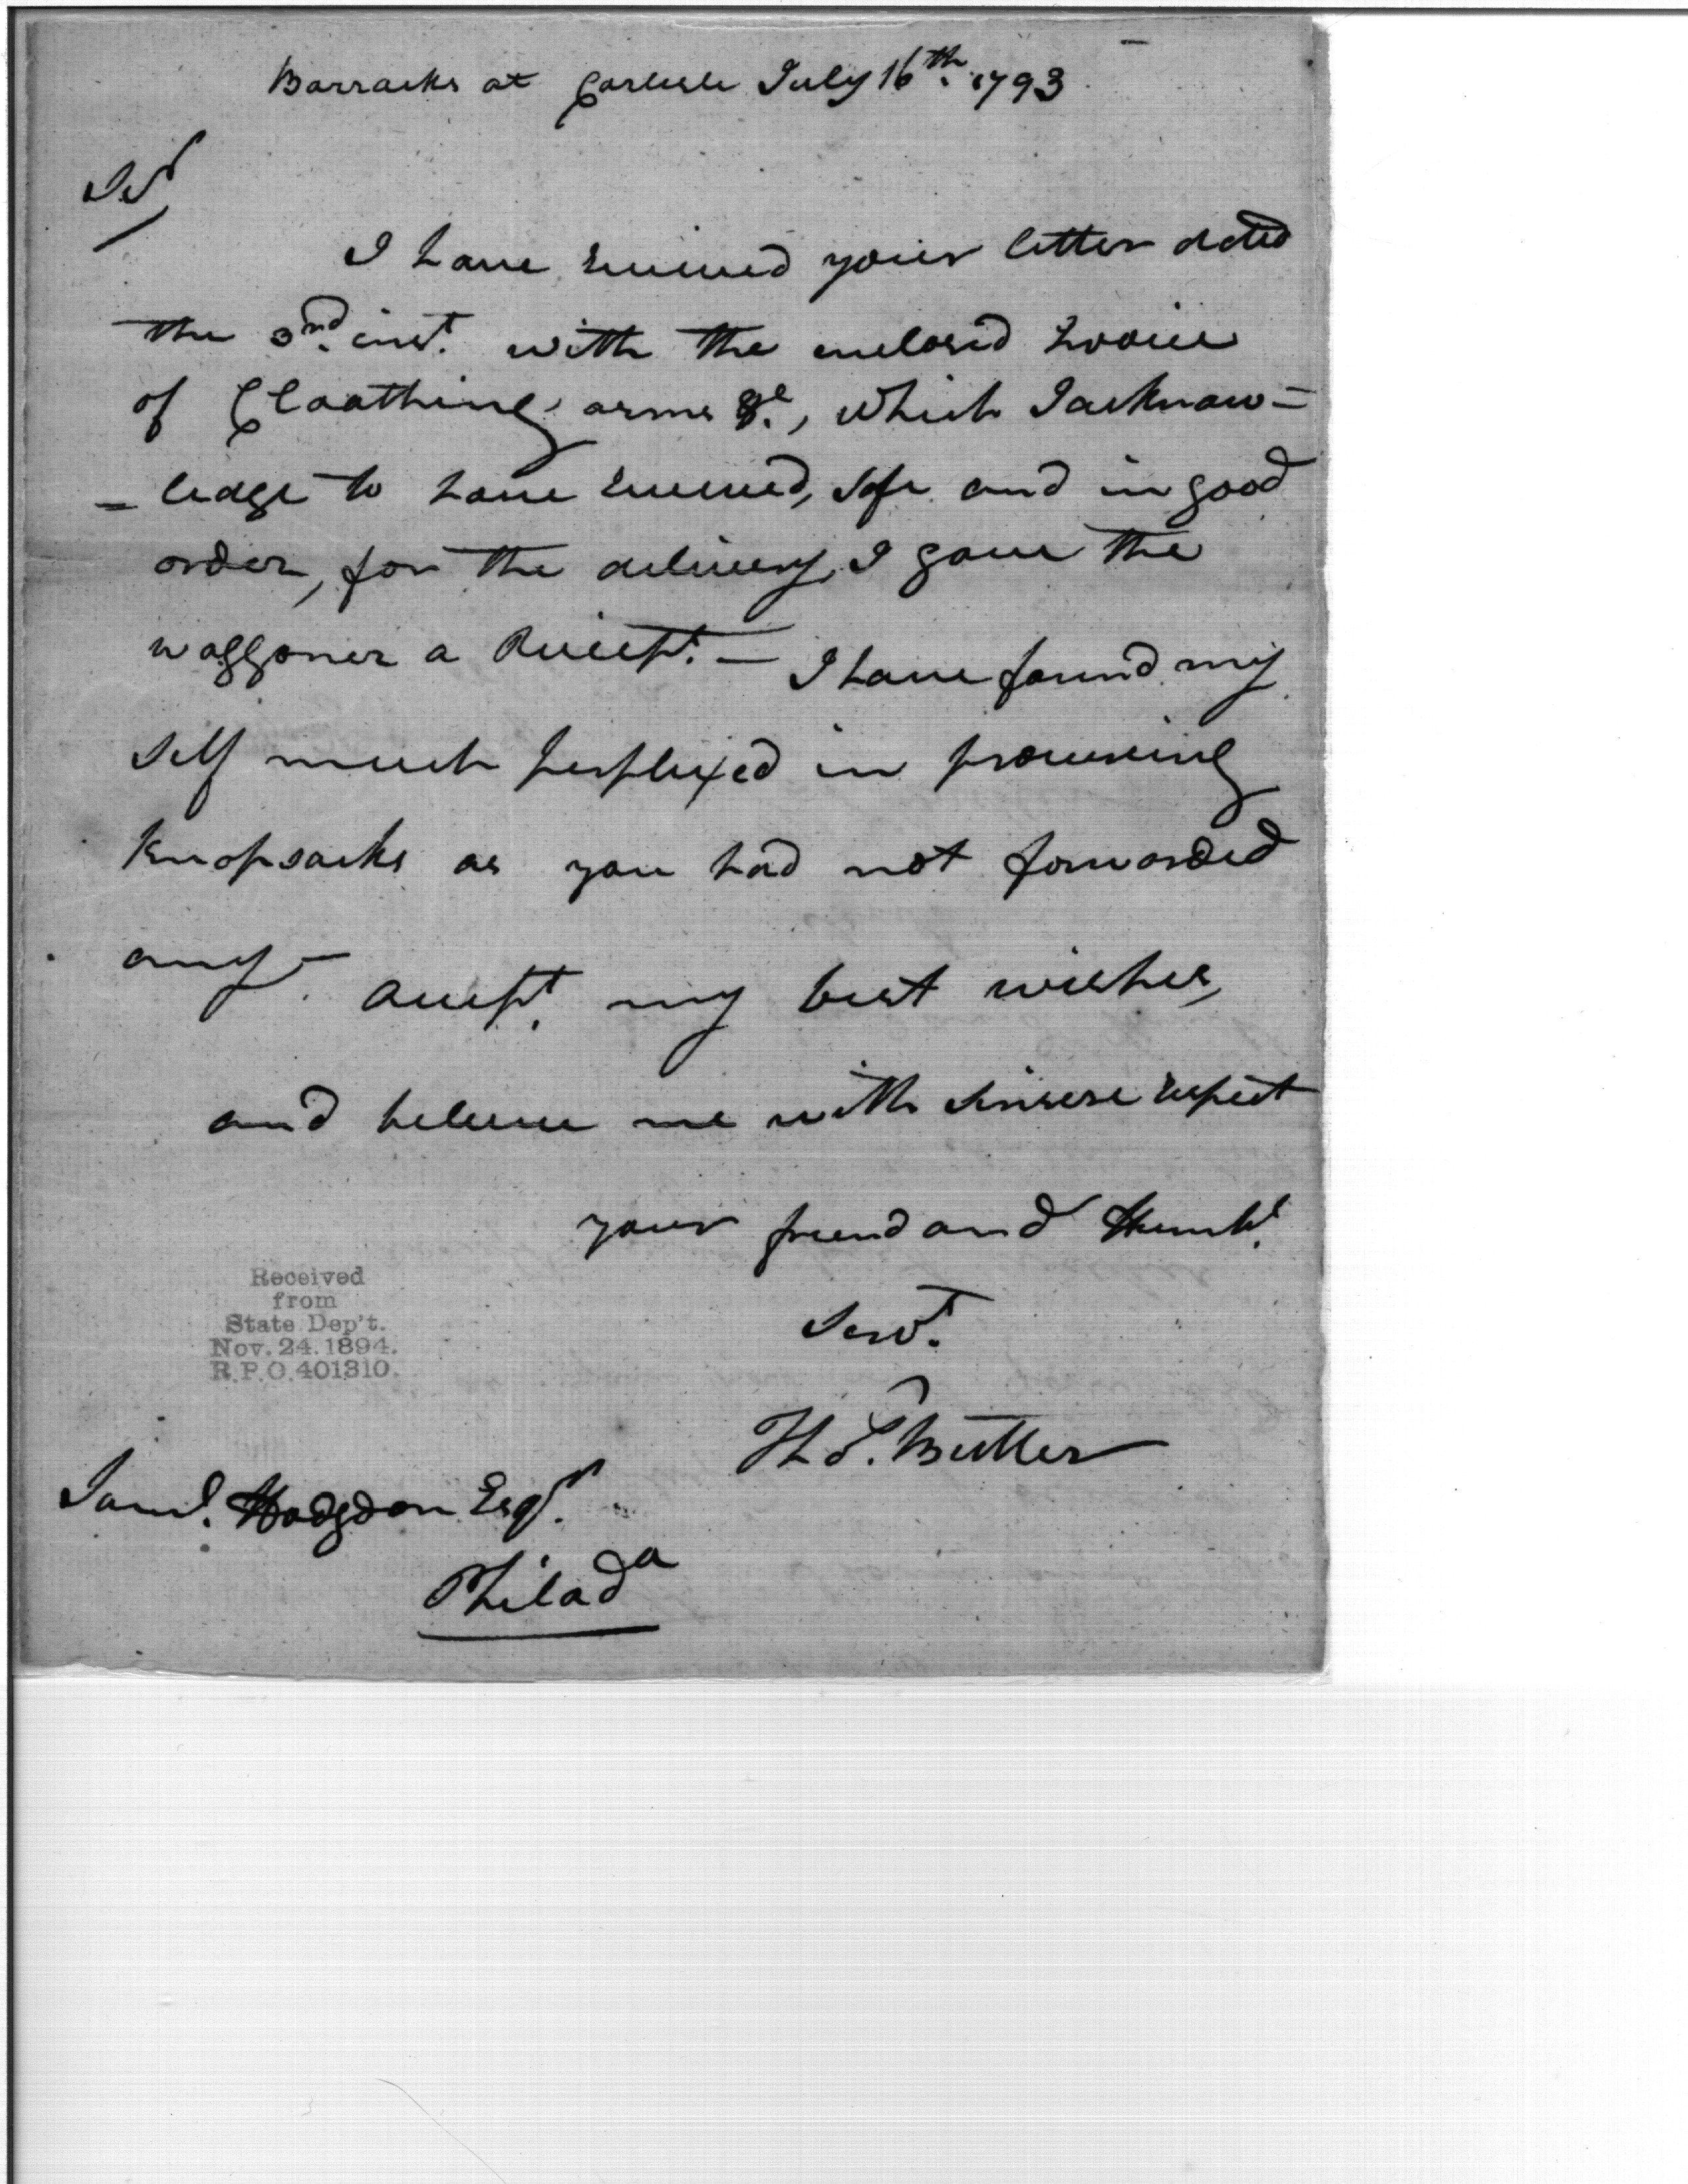 Barracks at Carlisle July 16th. 1793
Sir
I have received your letter dated
the 3rd. inst. with the enclosed Invoice
of Cloathing, arms &c., which I acknow=
=ledge to have received, safe and in good
order, for the delivery, I gave the
waggoner a Receipt. — I have found my
self much perplexed in procuring
Knapsacks as you had not forwarded
any —
Accept. my best wishes,
and believe me with sincere respect
your friend and Humbl.
Servt.
Received
from
State Dep't.
Nov. 24. 1894.
R.P.O. 401310.
Butler
Saml. Hodgdon Esqr.
Philada